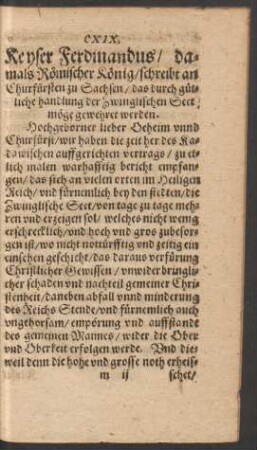 CXIX.
Keyser Ferdinandus/ da-
mals Römischer König/schreibt an
Churfürsten zu Sachsen/das durch güt-
liche handlung der Zwinglischen Sect
möge gewehret werden.
Hochgeborner lieber Oeheim vnnd
Churfürst/wir haben die zeit her des Ka-
dawischen auffgerichten vertrags/zu et-
lich malen warhafftig bericht empfan-
gen/das sich an vielen orten im Heiligen
Reich/vnd fürnemlich bey den stedten/die
Zwinglische Sect/von tage zu tage meh-
ren vnd erzeigen sol/welches nicht wenig
erschrecklich/vnd hoch vnd gros zubesor-
gen ist/wo nicht notturfftig vnd zeitig ein
einsehen geschicht/das daraus verfürung
Christlicher Gewissen/vnwiderbringli-
cher schaden vnd nachteil gemeiner Chri-
stenheit/daneben abfall vnnd minderung
des Reichs Stende/vnd fürnemlich auch
vngehorsam/empörung vnd auffstande
des gemeinen Mannes/wider die Ober
vnd Oberkeit erfolgen werde. Vnd die-
weil denn die hohe vnd grosse noth erheis-
m ij schet/